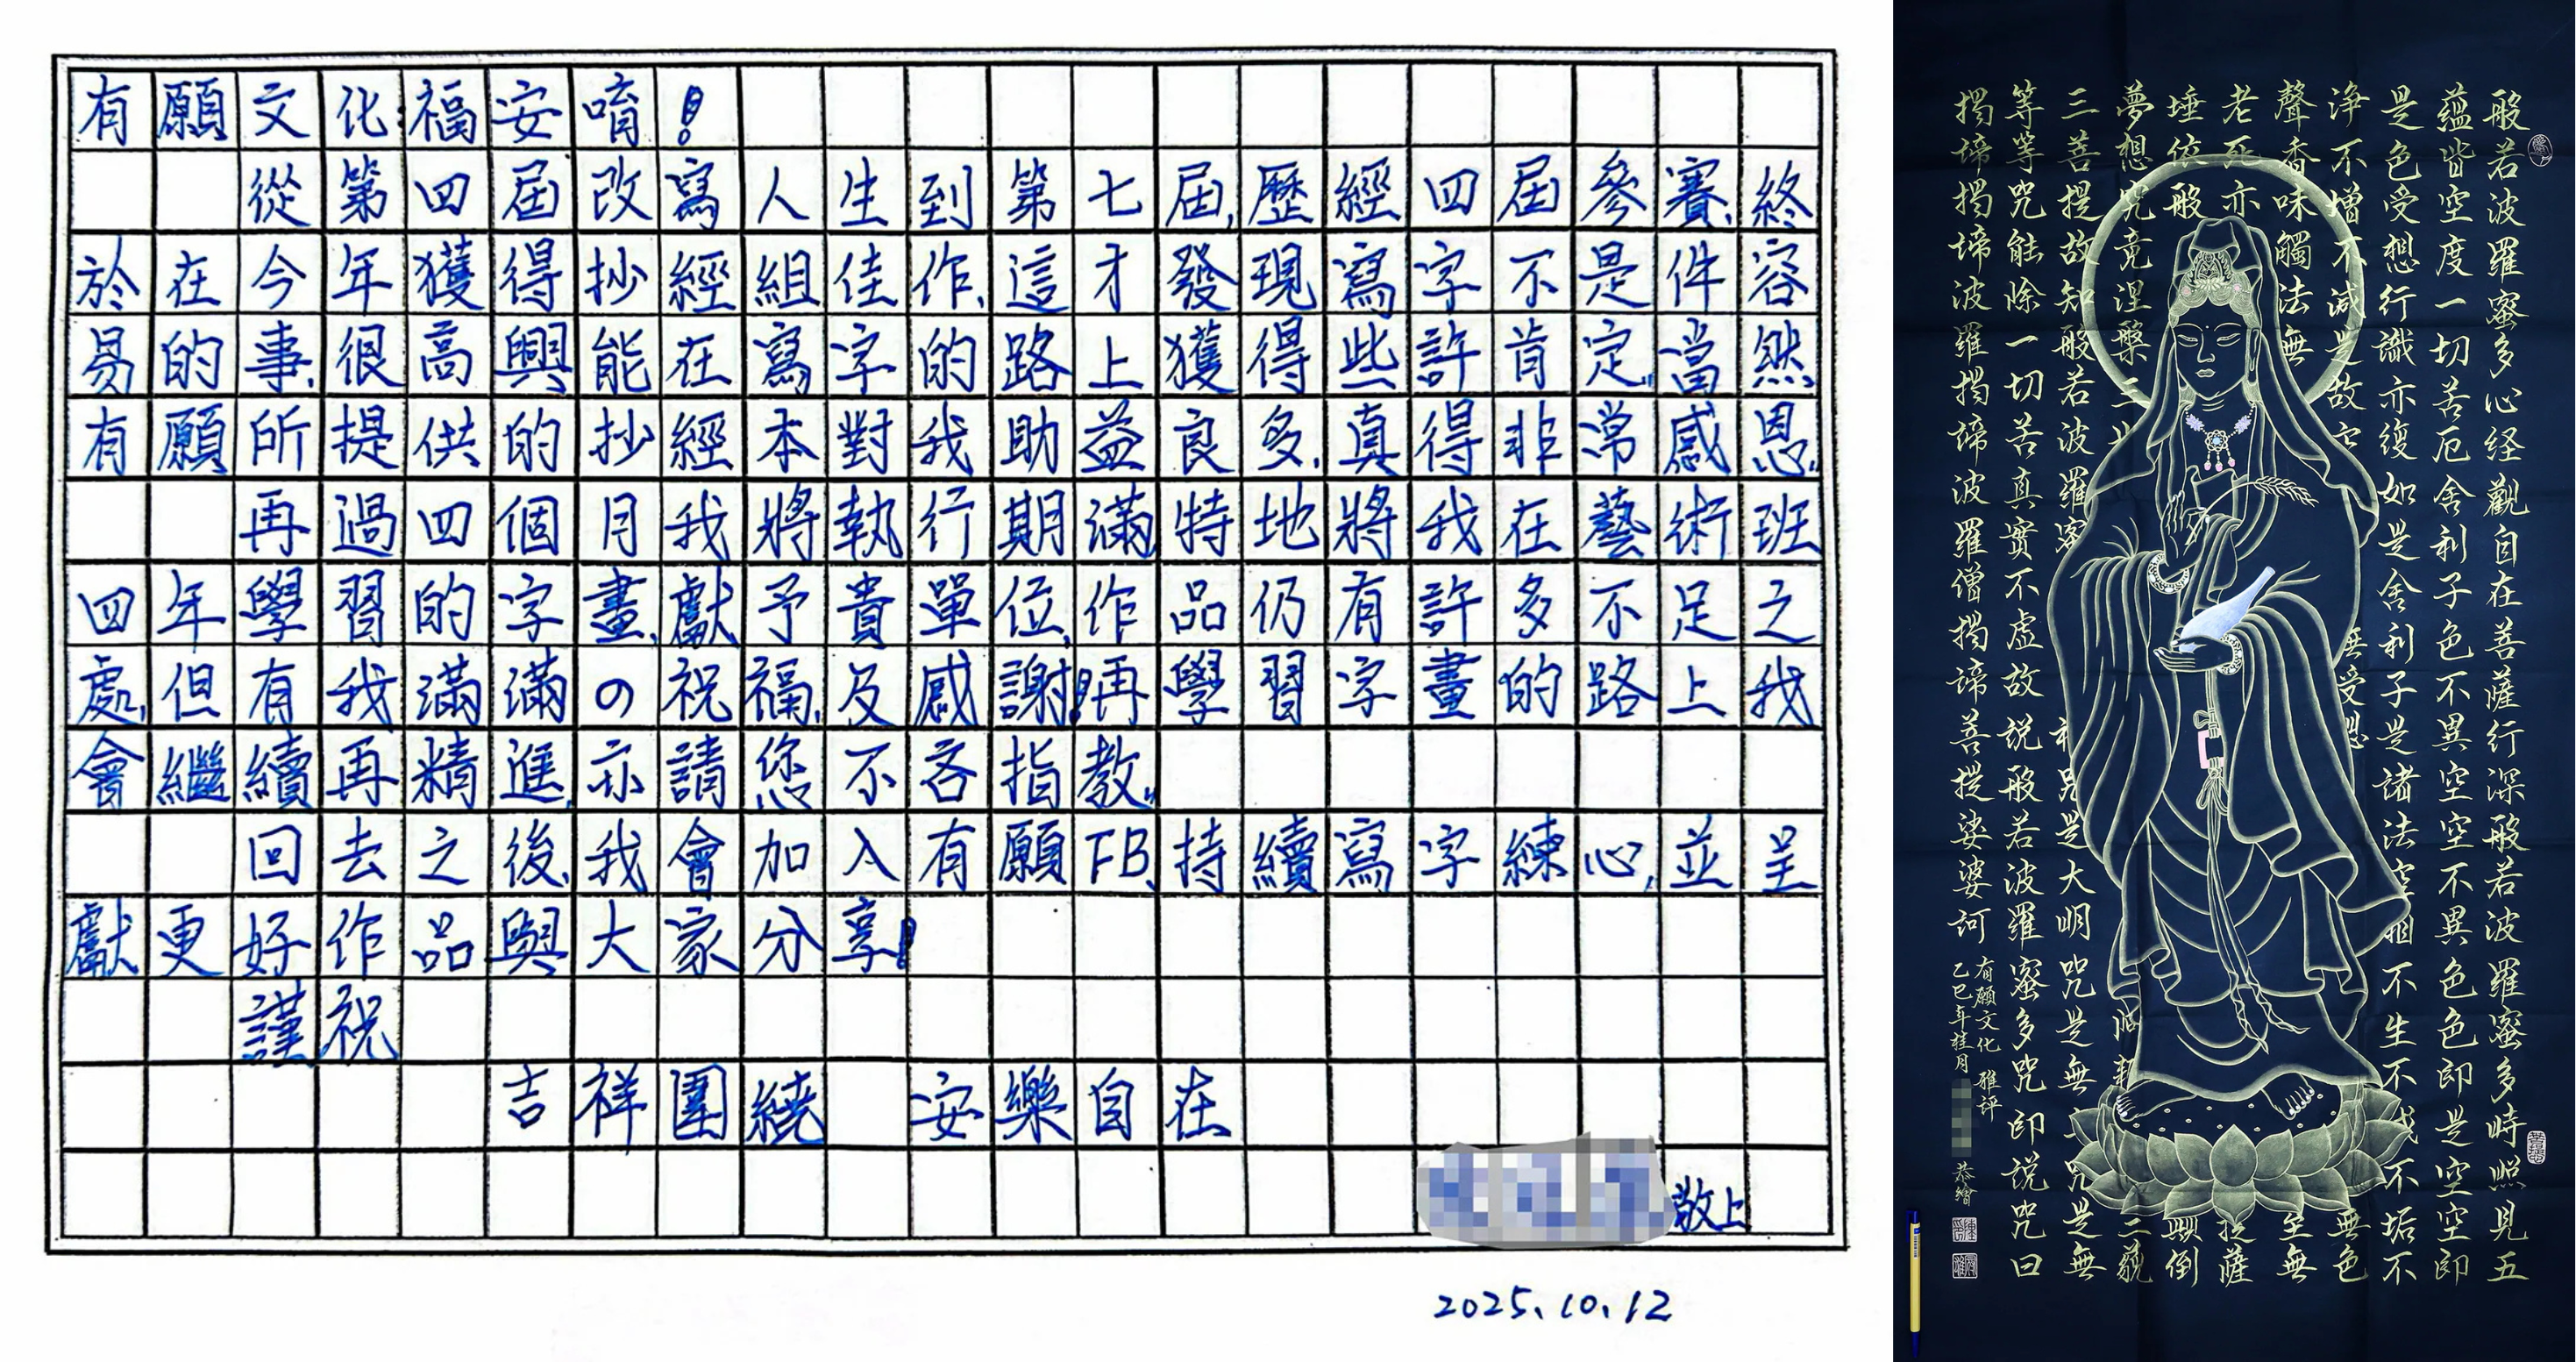 有願文化:福安唷!
從第四屆改寫人生到第七屆,歷經四屆參賽,終
於在今年獲得抄經組佳作,這才發現寫字不是件容
易的事,很高興能在寫字的路上獲得些許肯定,當然
有願所提供的抄經本對我助益良多,真得非常感恩,
再過四個月我將執行期滿,特地將我在藝術班
四年學習的字畫,獻予貴單位,作品仍有許多不足之
處,但有我滿滿の祝福,及感謝!再學習字畫的路上我
會繼續再精進,亦請您不吝指教,
回去之後,我會加入有願FB,持續寫字練心,並呈
獻更好作品與大家分享!
謹祝
吉祥圍繞 安樂自在
敬上
2025.10.12
般若波羅蜜多心経觀自在菩薩行深般若波羅蜜多時照見五
蘊皆空度一切苦厄舍利子色不異空空不異色色即是空空即
是色受想行識亦復如是舍利子是諸法空相不生不滅不垢不
淨不增不減是故空無受想無色
聲香味觸法無至無
老死亦提薩
埵依般顛倒
夢想究竟涅槃三三藐
三菩提故知般若波羅蜜是大明咒是無上咒是無
等等咒能除一切苦真實不虛故说般若波羅蜜多咒即说咒曰
揭谛揭谛波羅揭谛波羅僧揭谛菩提娑婆訶
有願文化 雅評
乙巳年桂月 恭繪